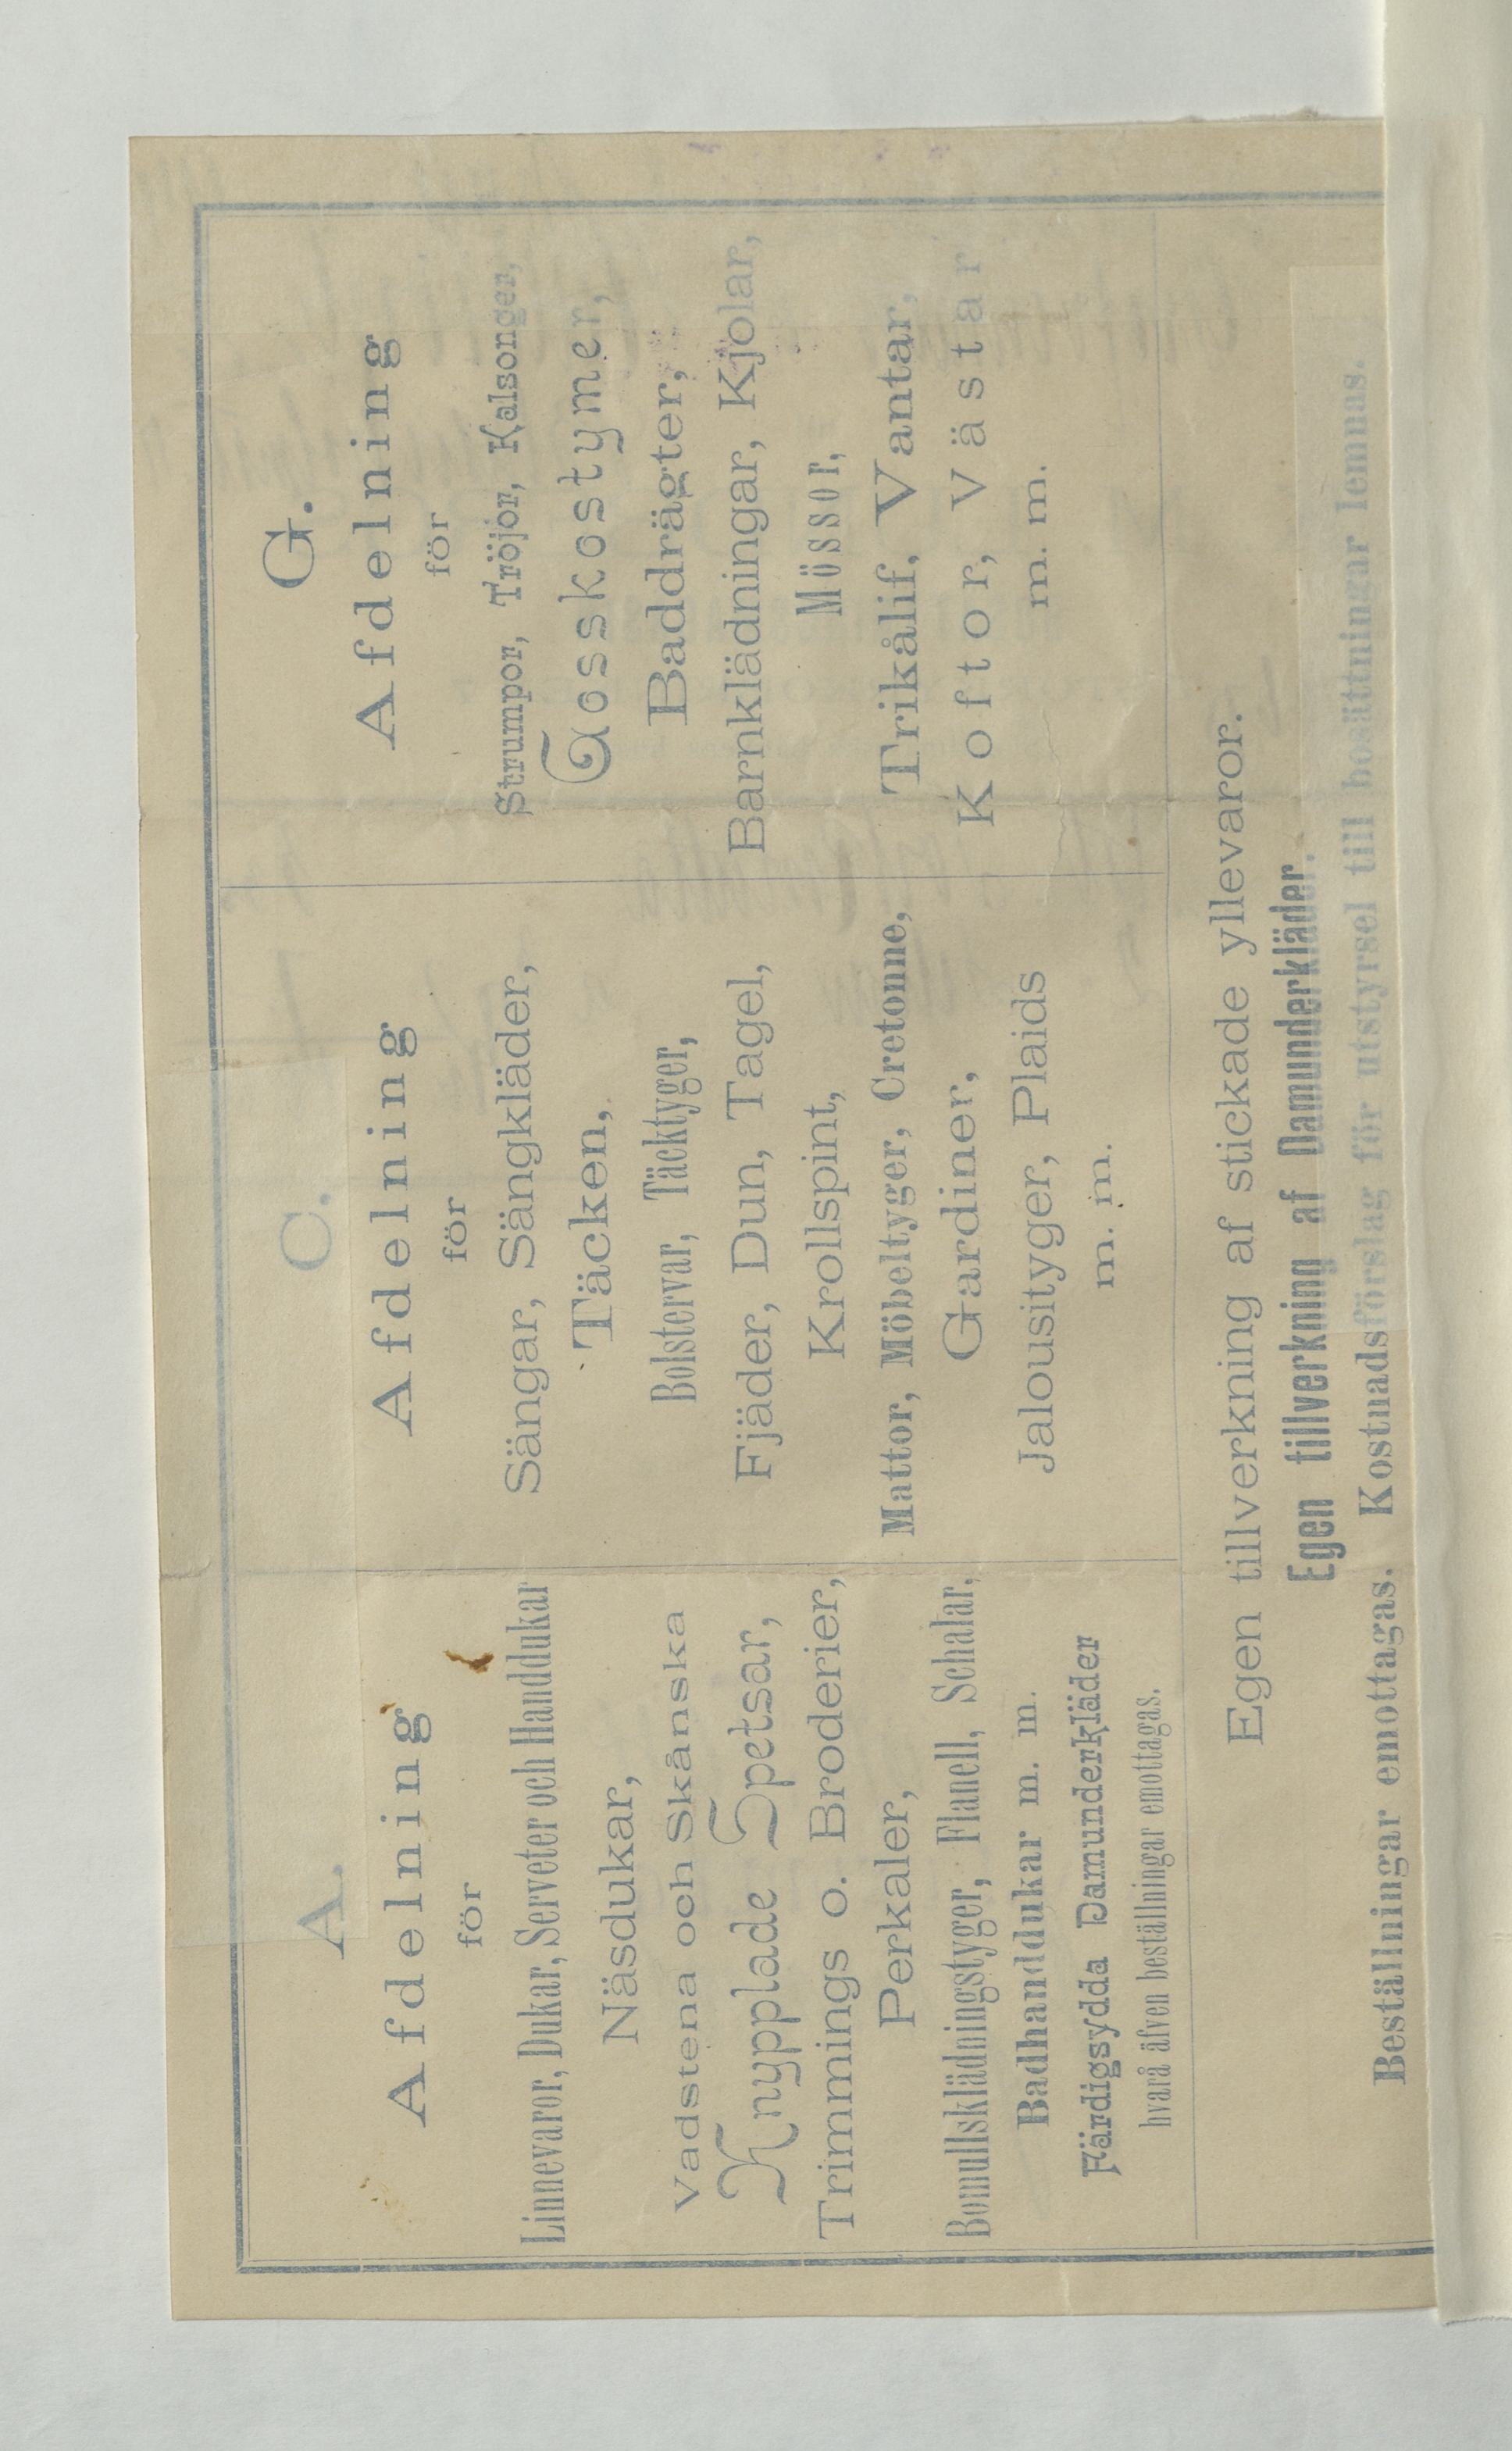 A.
Afdelning
för
Linnevaror, Dukar, Serveter och Handdukar
Näsdukar,
Vadstena och Skånska
Knypplade Spetsar,
Trimmings o. Broderier,
Perkaler,
Bomullsklädningstyger, Flanell, Schalar,
Badhanddukar m. m.
Färdigsydda Damunderkläder
hvarå äfven beställningar emottagas.
C.
Afdelning
för
Sängar, Sängkläder,
Täcken,
Bolstervar, Täcktyger,
Fjäder, Dun, Tagel,
Krollspint,
Mattor, Möbeltyger, Cretonne,
Gardiner,
Jalousityger, Plaids
m. m.
G.
Afdelning
för
Strumpor, Tröjor, Kalsonger,
Gosskostymer,
Baddrägter,
Barnklädningar, Kjolar,
Mössor,
Trikålif, Vantar,
Koftor, Västar
m. m.
Egen tillverkning af stickade yllevaror.
Egen tillverkning af Damunderkläder.
Beställningar emottagas. Kostnadsförslag för utstyrsel till bosättningar lemnas.